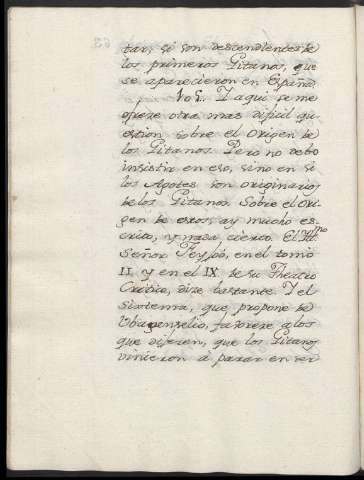 tar, si son descendientes de
los primeros Gitanos, que
se aparecieron en España.
105. I aqui se me
ofreze otra mas dificil qu-
estion sobre el Origen de
los Gitanos. Pero no debo
insistir en eso, sino en si
los Agotes son originarios
de los Gitanos. Sobre el Ori-
gen de estos, ay mucho es-
crito, y nada cierto. El Ill.mo
Señor Feyjoó, en el tomo
II y en el IX de su Theatro
Critico, dize bastante. I el
sixtema, que propone de
favoreze a los
que dizen, que los Gitanos
vinieron a parar en ser